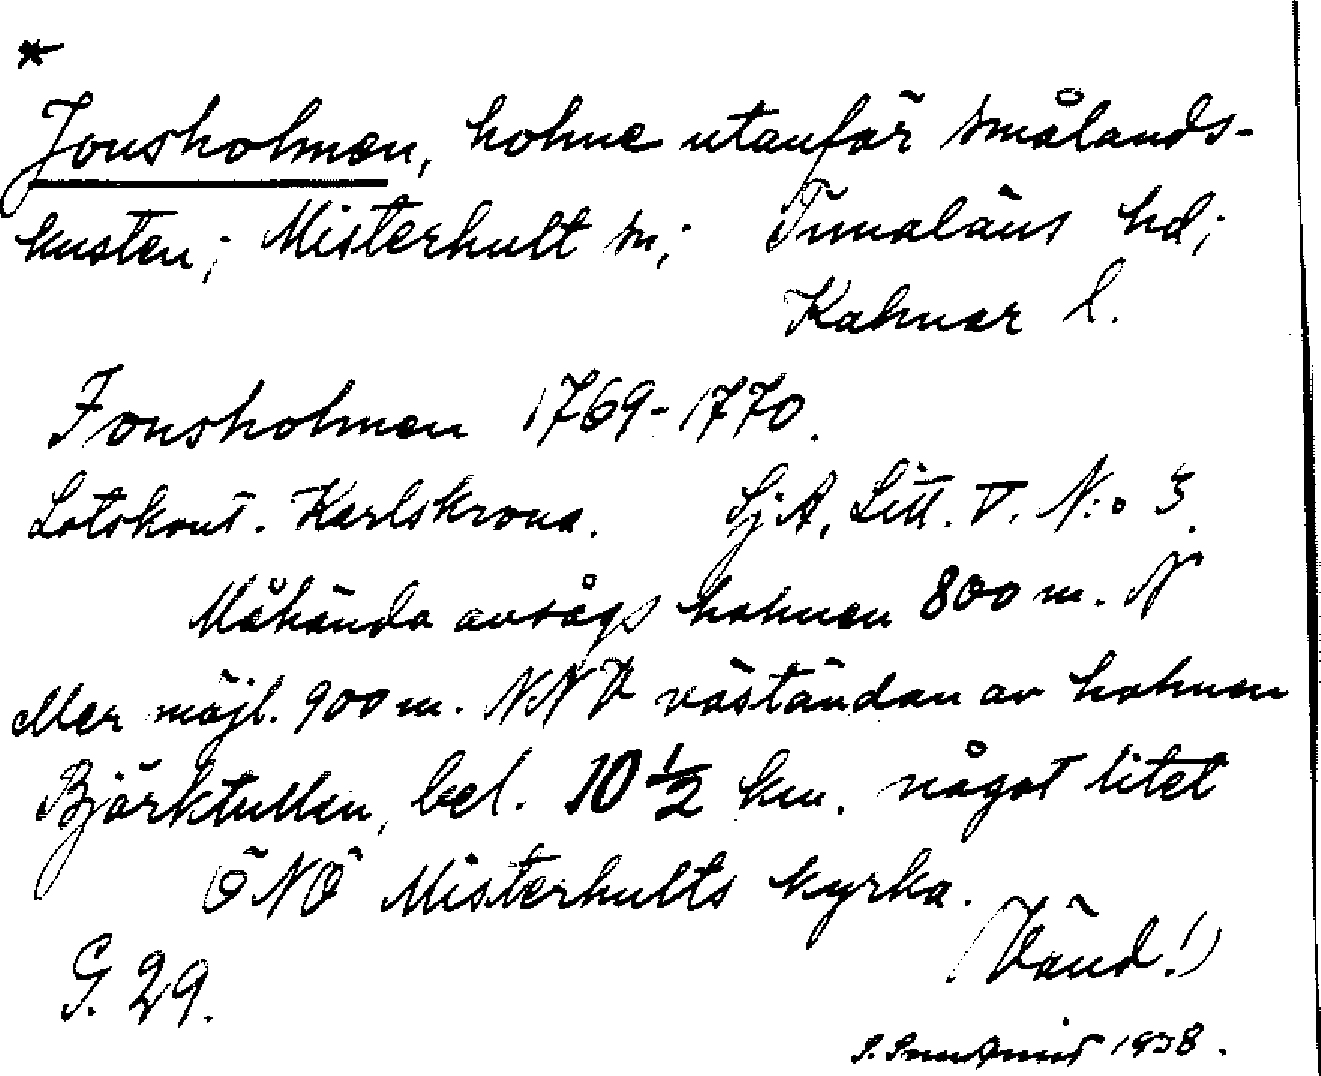 *
Jonsholmen, holme utanför Smålands-
kusten; Misterhult sn; Tunaläns hd;
Kalmar l.
Jonsholmen 1769-1770.
Lotskont. Karlskrona. SjA, Litt. V. N:o 3.
Måhända avsågs holmen 800 m. N
eller möjl. 900 m. NNV väständan av holmen
Björktullen, bel. 10 1/2 km. något litet
ÖNÖ Misterhults kyrka.
(Vänd!)
G. 29.
1938.